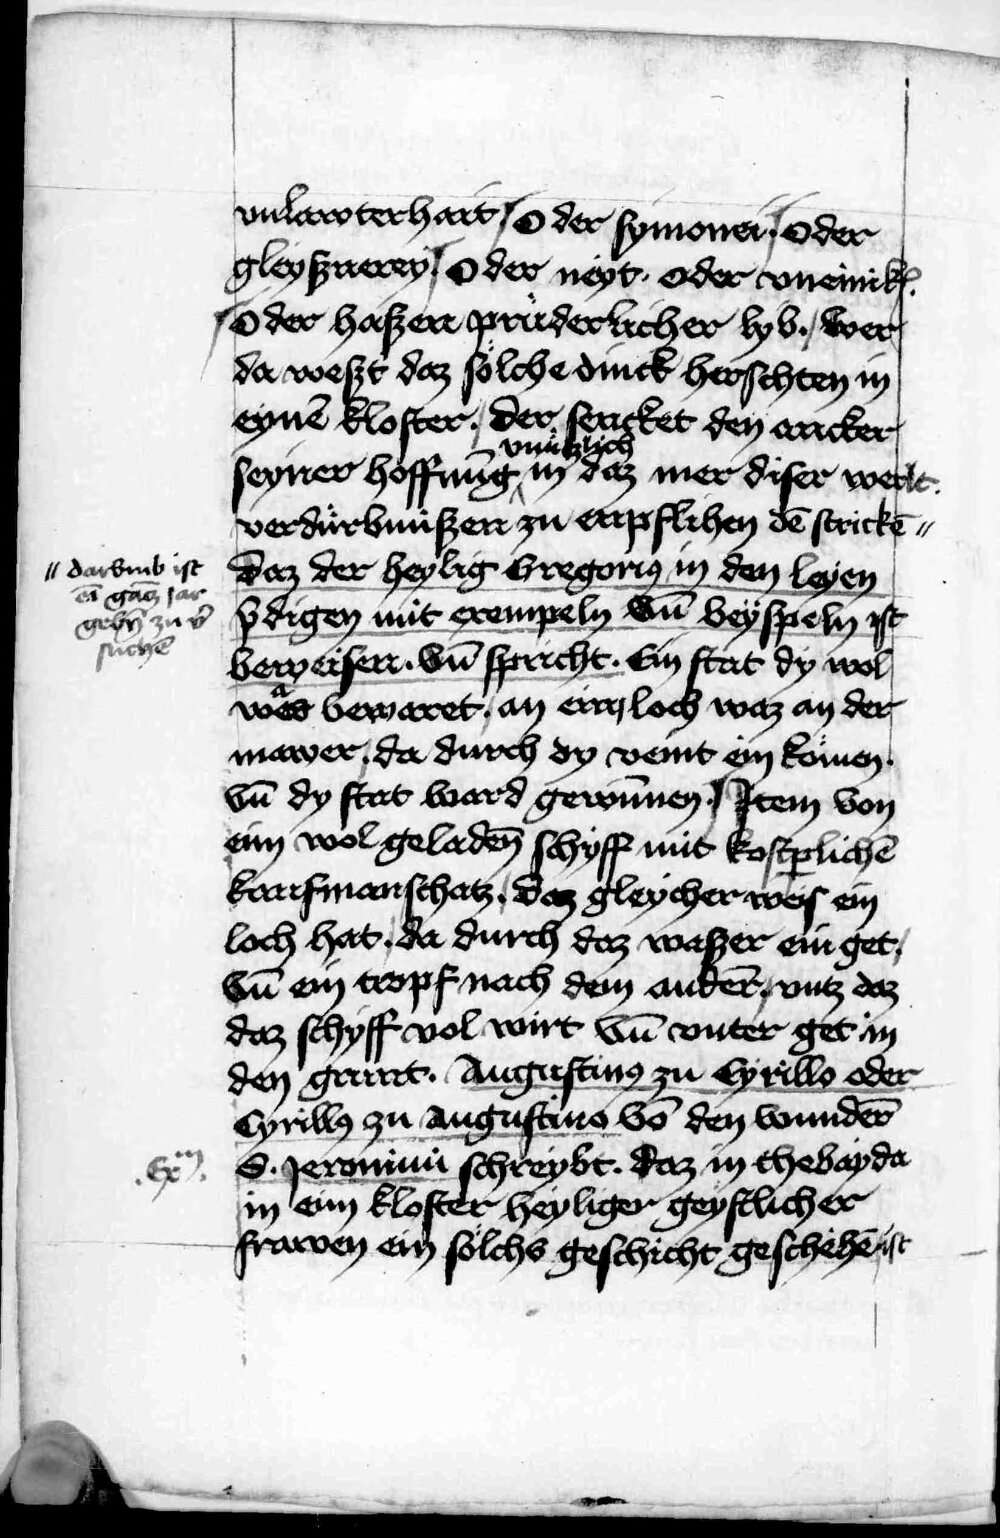 vnlawterhait / Oder symonei. Oder
gleyßnerey. Oder neyt. oder vneinikꝭ.
Oder haßen prüderlicher lyb. / Wer
da weßt daz sölche dinck herschten in
eynē kloster. / der sencket den ancker
seyner hoffnūg vnützlich in daz mer diser werlt.
verdürbnüßen zu enpflihen dē strickē //
Daz der heylig Gregorius in den leyen
p̄digen mit exempeln Vn̄ beyspeln ist
beweisen. Vn̄ spricht. Ein stat dy wol
was bewaret / an ein loch waz an der
mawer / da durch dy veint ein kömen.
Vn̄ dy stat ward gewūnen. / Item von
eim wol geladen̄ schyff mit kostperlichē
kaufmanschatz / daz gleycher weis ein
loch hat / da durch daz waßer ein get /
Vn̄ ein tropf nach dem ander̄ / vntz daz
daz schyff vol wirt Vn̄ vnter get in
den grunt. Augustinus zu Cyrillo oder
Cyrillus zu Augustino Vō den wunder̄
S. Jeronimi schreybt. Daz in thebayda
in eim kloster heyliger geystlicher
frawen ein sölchs geschicht geschehē ist
// darvmb ist
ei gātz iar
gebn̄ zu v̄
suchē
.Exm.